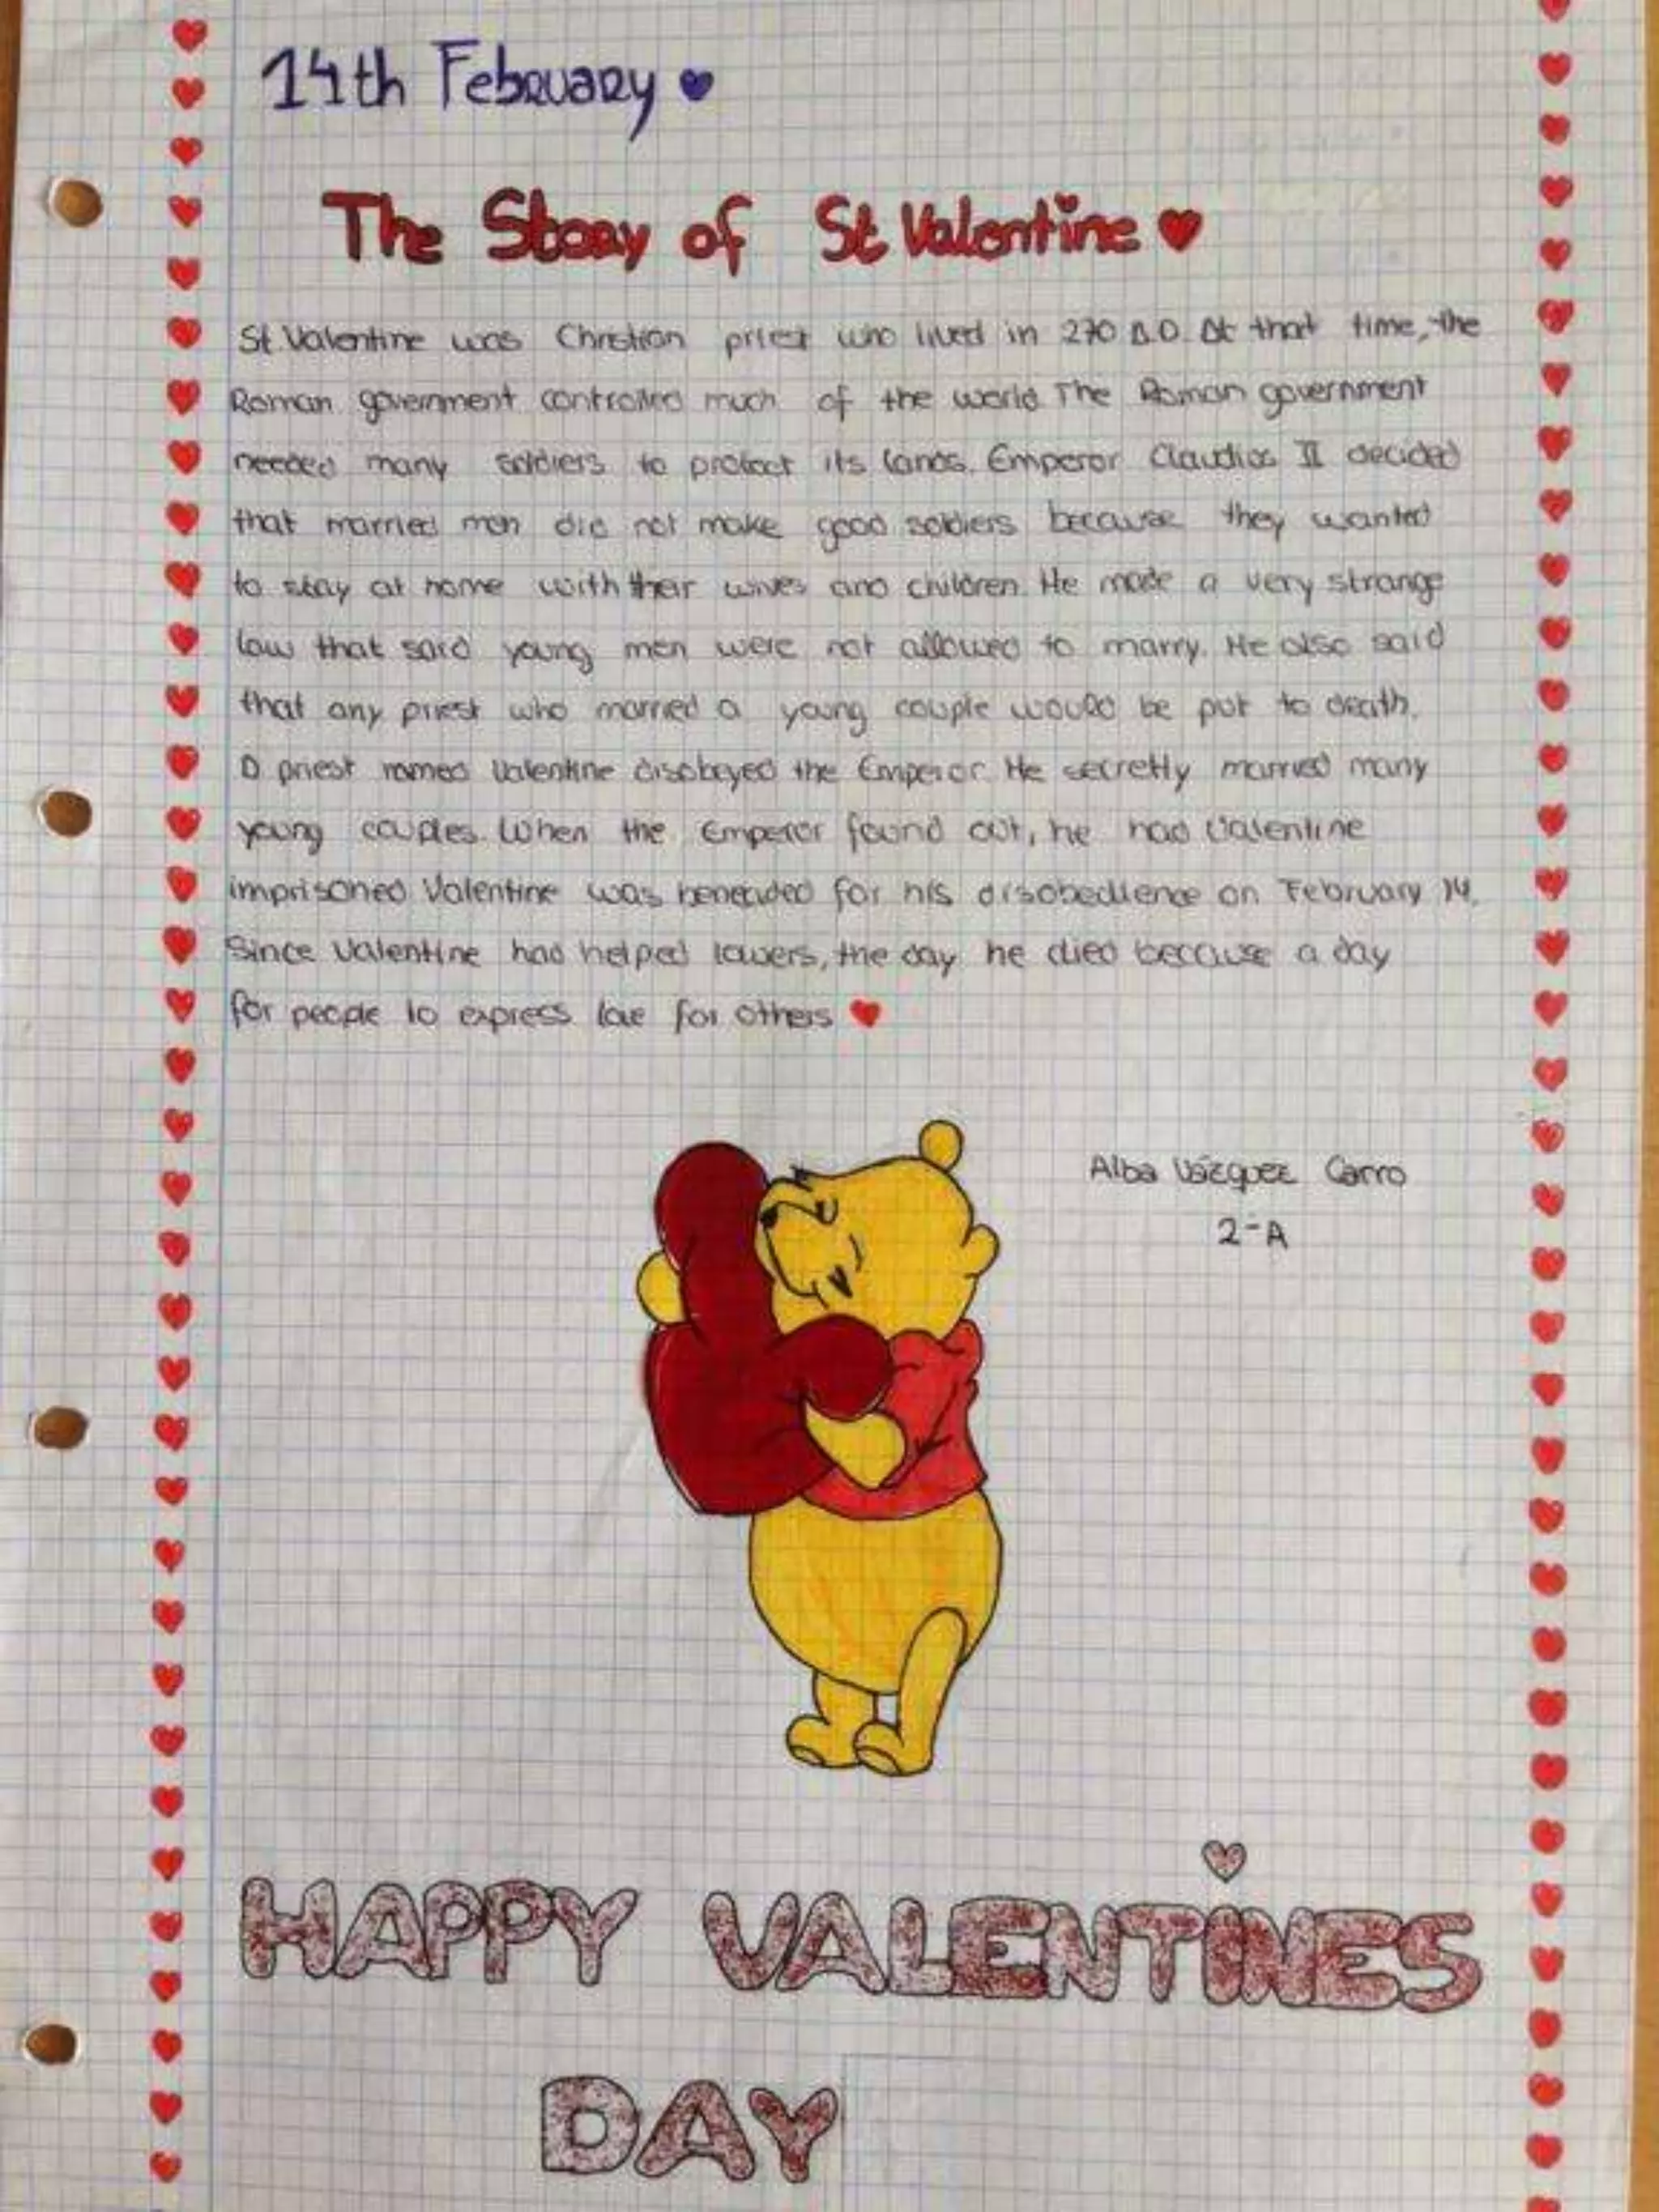 14th February
The Story of St Valentine
St. Valentine was Christian priest who lived in 270 A.D. At that time, the
Roman government controlled much of the world. The Roman government
needed many soldiers to protect its lands. Emperor Claudios II decided
that married men did not make good soldiers because they wanted
to stay at home with their wives and children. He made a very strange
law that said young men were not allowed to marry. He also said
that any priest who married a young couple would be put to death.
A priest named Valentine disobeyed the Emperor. He secretly married many
young couples. When the Emperor found out, he had Valentine
imprisoned Valentine was beheaded for his disobedience on February 14.
Since Valentine had helped lowers, the day he died because a day
for people to express love for others
Alba Vázquez Carro
2-A
HAPPY VALENTINES
DAY